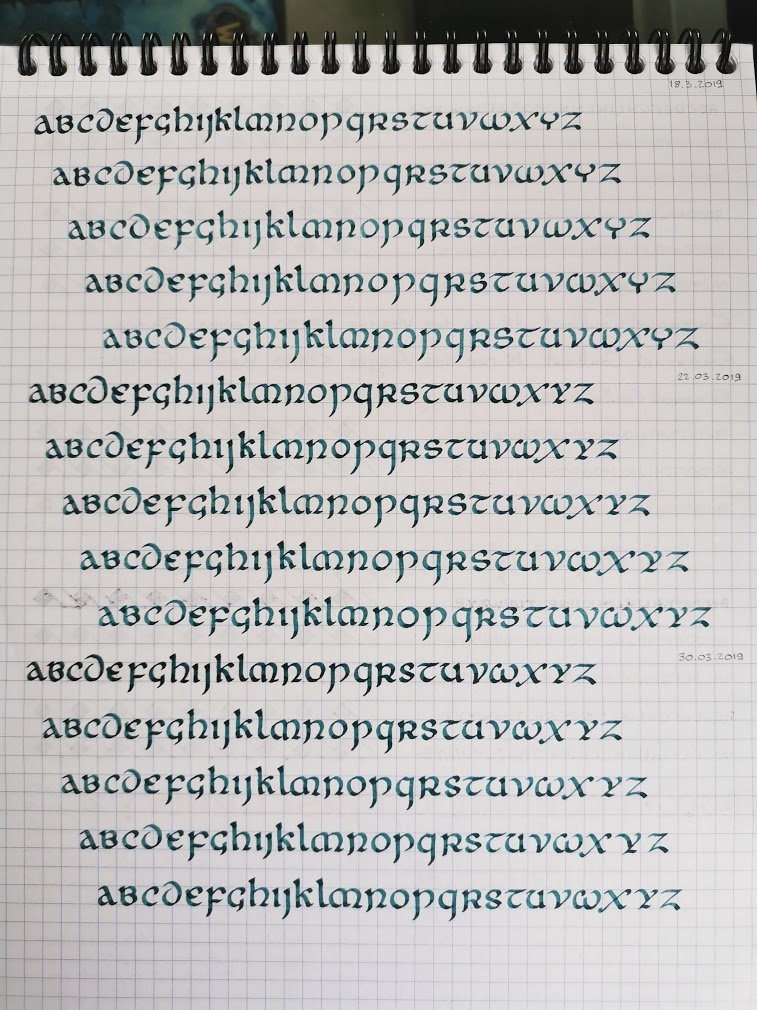 18.3.2019
abcdefghijklmnopqrstuvwxyz
abcdefghijklmnopqrstuvwxyz
abcdefghijklmnopqrstuvwxyz
abcdefghijklmnopqrstuvwxyz
abcdefghijklmnopqrstuvwxyz
22.03.2019
abcdefghijklmnopqrstuvwxyz
abcdefghijklmnopqrstuvwxyz
abcdefghijklmnopqrstuvwxyz
abcdefghijklmnopqrstuvwxyz
abcdefghijklmnopqrstuvwxyz
30.03.2019
abcdefghijklmnopqrstuvwxyz
abcdefghijklmnopqrstuvwxyz
abcdefghijklmnopqrstuvwxyz
abcdefghijklmnopqrstuvwxyz
abcdefghijklmnopqrstuvwxyz